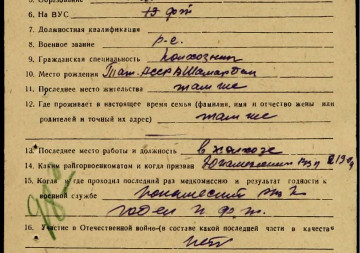 6. На ВУС 13 фт
7. Должностная квалификация
8. Военное звание р-с.
9. Гражданская специальность Колхозник
10. Место рождения Тат. АССР
11. Последнее место жительства там же
12. Где проживает в настоящее время семья (фамилия, имя и отчество жены или
родителей и точный их адрес) там же
13. Последнее место работы и должность в колхозе
14. Каким райгорвоенкоматом и когда призван
15. Когда и где проходил последний раз медкомиссию и результат годности к
военной службе
годен
16. Участие в Отечественной войне (в составе какой последней части в качестве
нет